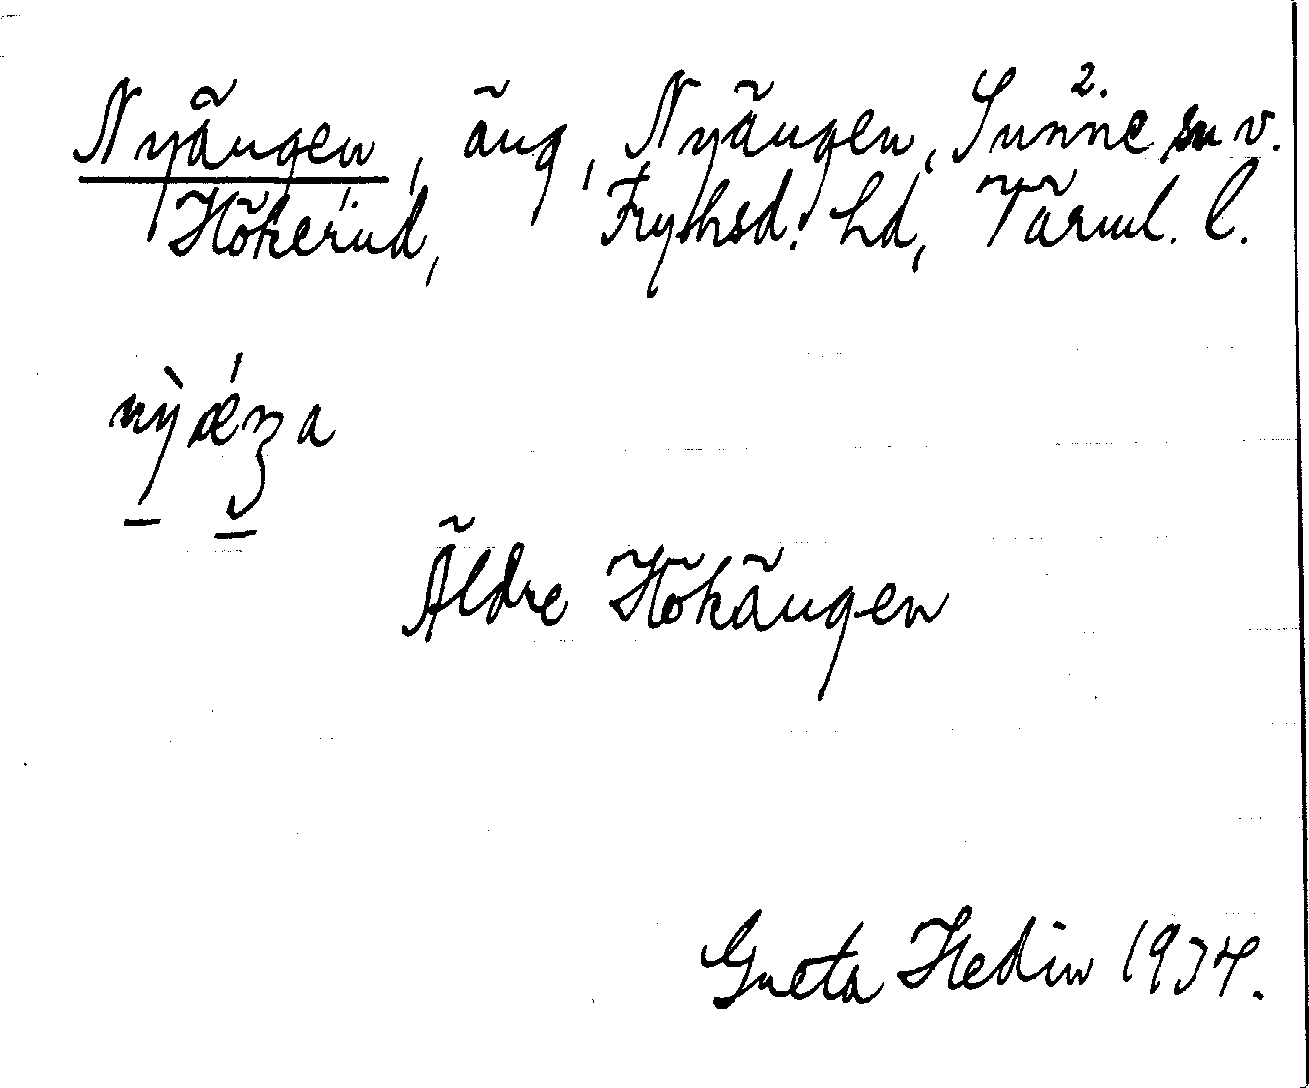 Nyängen, äng, Nyängen, Sunne sn v.
2.
Hökerud, Fryksd. hd, Värml. l.
nỳǽŋa
Äldre Hökängen
Greta Hedin 1934.